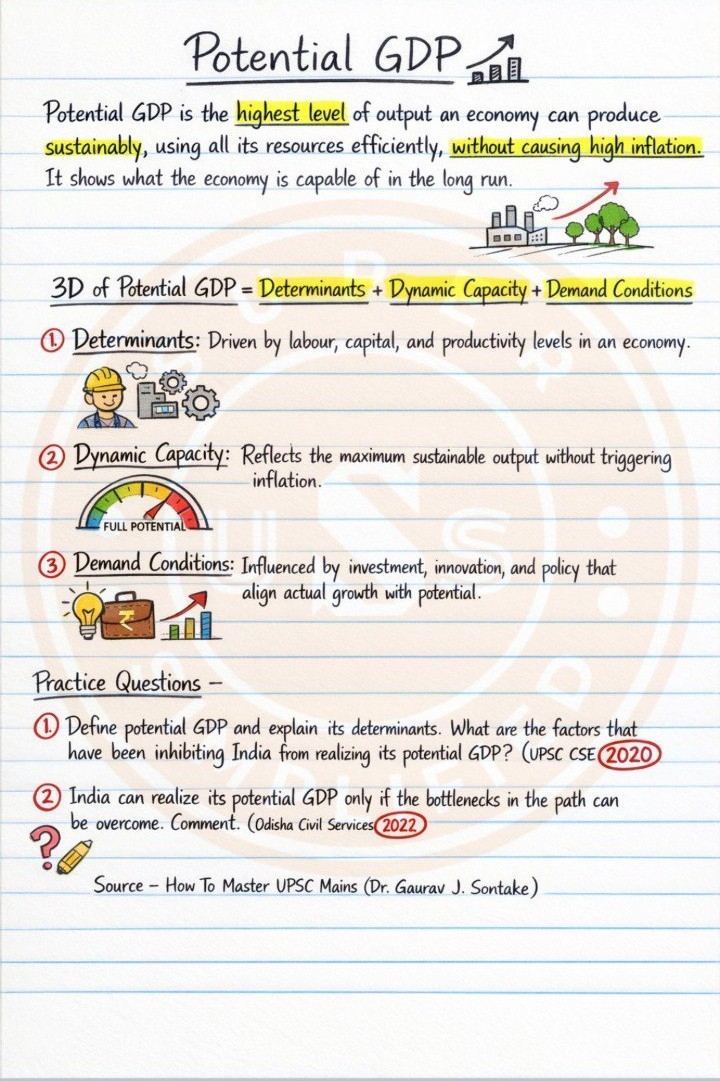 Potential GDP
Potential GDP is the highest level of output an economy can produce
sustainably, using all its resources efficiently, without causing high inflation.
It shows what the economy is capable of in the long run.
3D of Potential GDP = Determinants + Dynamic Capacity + Demand Conditions
1. Determinants: Driven by labour, capital, and productivity levels in an economy.
2 Dynamic Capacity: Reflects the maximum sustainable output without triggering
inflation.
FULL POTENTIAL
3 Demand Conditions: Influenced by investment, innovation, and policy that
align actual growth with potential.
₹
Practice Questions –
1. Define potential GDP and explain its determinants. What are the factors that
have been inhibiting India from realizing its potential GDP? (UPSC CSE 2020
2 India can realize its potential GDP only if the bottlenecks in the path can
be overcome. Comment. (Odisha Civil Services 2022
?
Source – How To Master UPSC Mains (Dr. Gaurav J. Sontake)